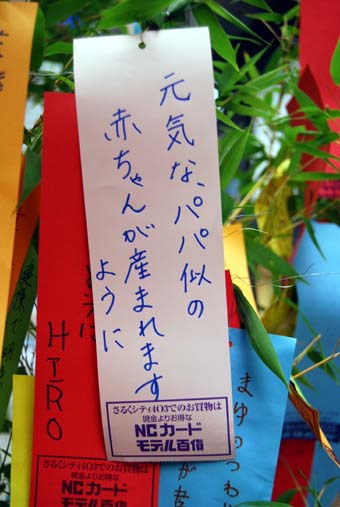 元気な、パパ似の
赤ちゃんが産まれます
ように
さるくシティ4〇3でのお買物は
現金よりお得な
NCカード
モデル百貨
HIRO
さるくシティ4〇3でのお買物は
現金よりお得な
NCカード
モデル百貨
まゆのつわ